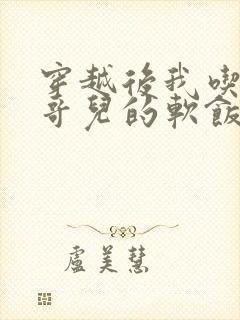 穿越後我喫
哥兒的軟飯
盧美慧